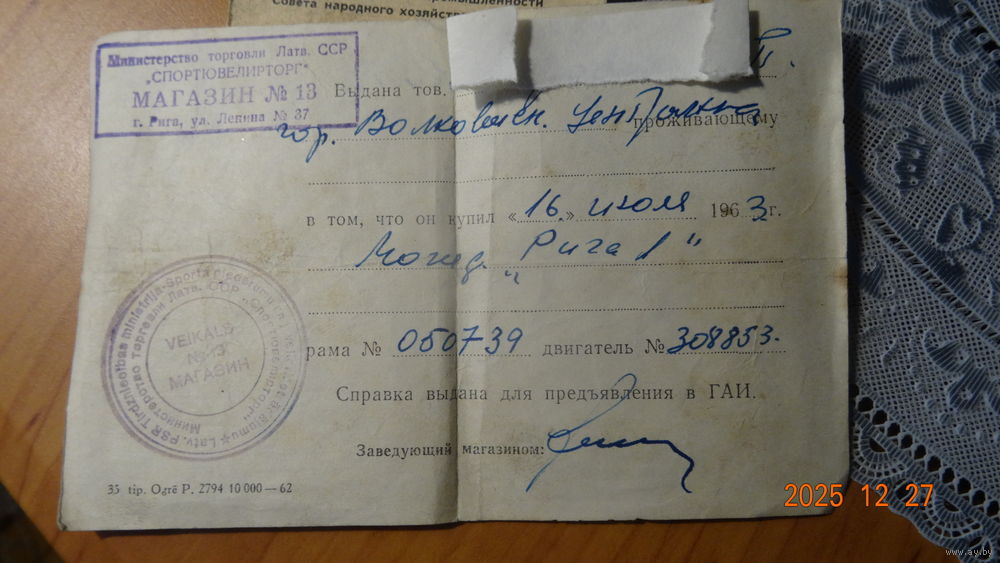 Совета народного хозяйства
Министерство торговли Латв. ССР
„СПОРТЮВЕЛИРТОРГ"
МАГАЗИН № 13
г. Рига, ул. Ленина № 37
Выдана тов.
гор. Волковыск. Центральная
проживающему
в том, что он купил «16.» июля 1963 г.
Мопед. „Рига 1"
рама № 050739 двигатель № 308853.
Справка выдана для предъявления в ГАИ.
Заведующий магазином:
VEIKALS
№ 13
МАГАЗИН
35 tip. Ogrē P. 2794 10 000—62
2025 12 27
www.ay.by